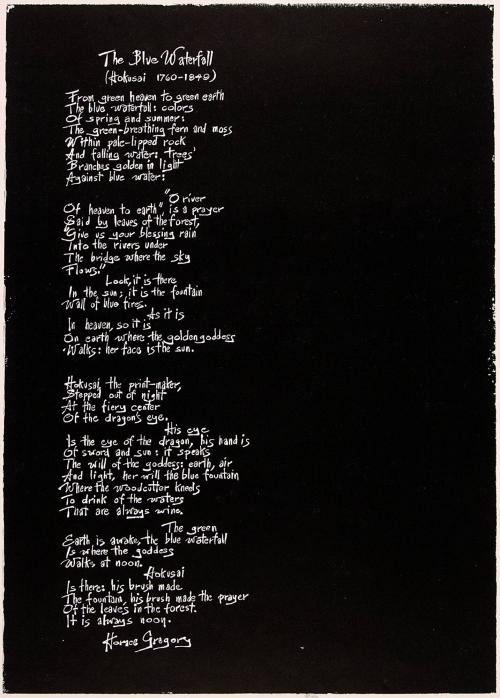 The Blue Waterfall
(Hokusai 1760-1849)
From green heaven to green earth
The blue waterfall: colors
Of spring and summer:
The green-breathing fern and moss
Within pale-lipped rock
And falling water: trees'
Branches golden in light
Against blue water:
"O river
Of heaven to earth", is a prayer
Said by leaves of the forest,
"Give us your blessing rain
Into the rivers under
The bridge where the sky
Flows."
Look, it is there
In the sun; it is the fountain
Wall of blue fires.
As it is
In heaven, so it is
On earth where the golden goddess
Walks: her face is the sun.
Hokusai, the print-maker,
Stepped out of night
At the fiery center
Of the dragon's eye.
His eye
Is the eye of the dragon, his hand is
Of sword and sun: it speaks
The will of the goddess: earth, air
And light, her will the blue fountain
Where the woodcutter kneels
To drink of the waters
That are always wine.
The green
Earth is awake, the blue waterfall
Is where the goddess
Walks at noon.
Hokusai
Is there: his brush made
The fountain, his brush made the prayer
Of the leaves in the forest.
It is always noon.
Horace Gregory